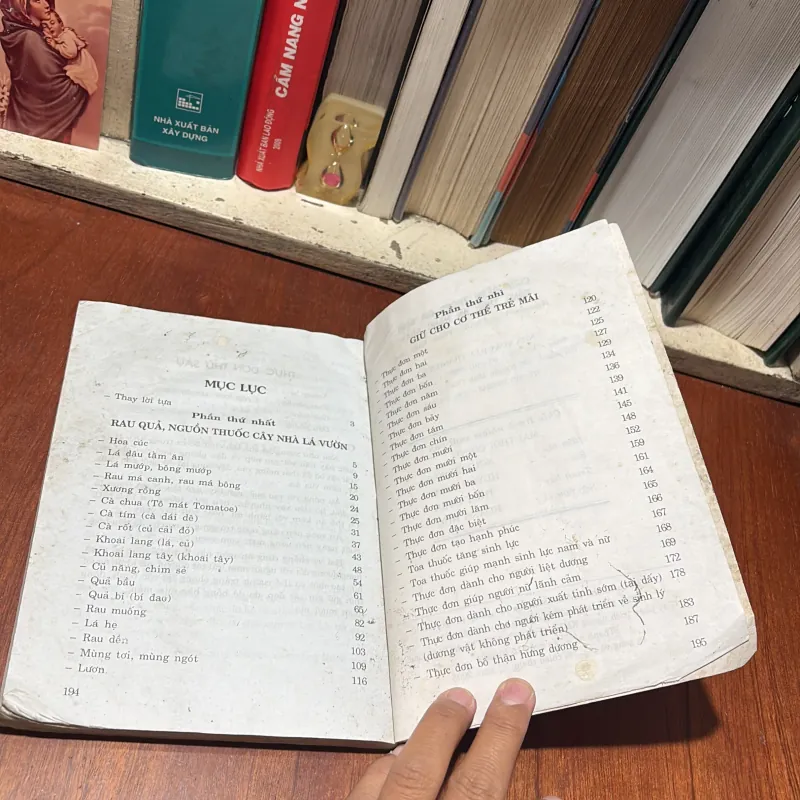 NHÀ XUẤT BẢN
XÂY DỰNG
CẨM NANG N
NHÀ XUẤT BẢN LAO ĐỘNG
2009
MỤC LỤC
– Thay lời tựa 3
Phần thứ nhất
RAU QUẢ, NGUỒN THUỐC CÂY NHÀ LÁ VƯỜN
– Hoa cúc 5
– Lá dâu tằm ăn 9
– Lá mướp, bông mướp 15
– Rau má canh, rau má bông 20
– Xương rồng 24
– Cà chua (Tô mát Tomatoe) 25
– Cà tím (cà dái dê) 31
– Cà rốt (củ cải đỏ) 37
– Khoai lang (lá, củ) 43
– Khoai lang tây (khoai tây) 48
– Củ năng, chim sẻ 54
– Quả bầu 61
– Quả bí (bí đao) 65
– Rau muống 82
– Lá hẹ 92
– Rau dền 103
– Mùng tơi, mùng ngót 109
– Lươn 116
194
Phần thứ nhì
GIỮ CHO CƠ THỂ TRẺ MÃI 120
– Thực đơn một 122
– Thực đơn hai 125
– Thực đơn ba 127
– Thực đơn bốn 129
– Thực đơn năm 134
– Thực đơn sáu 136
– Thực đơn bảy 139
– Thực đơn tám 141
– Thực đơn chín 145
– Thực đơn mười 148
– Thực đơn mười một 152
– Thực đơn mười hai 159
– Thực đơn mười ba 161
– Thực đơn mười bốn 164
– Thực đơn mười lăm 165
– Thực đơn đặc biệt 166
– Thực đơn tạo hạnh phúc 167
– Toa thuốc tăng sinh lực 168
– Toa thuốc giúp mạnh sinh lực nam và nữ 169
– Thực đơn dành cho người liệt dương 172
– Thực đơn giúp người nữ lãnh cảm 178
– Thực đơn dành cho người xuất tinh sớm (tại dấy) 183
– Thực đơn dành cho người kém phát triển về sinh lý
(dương vật không phát triển) 187
– Thực đơn bổ thận hứng dương 195